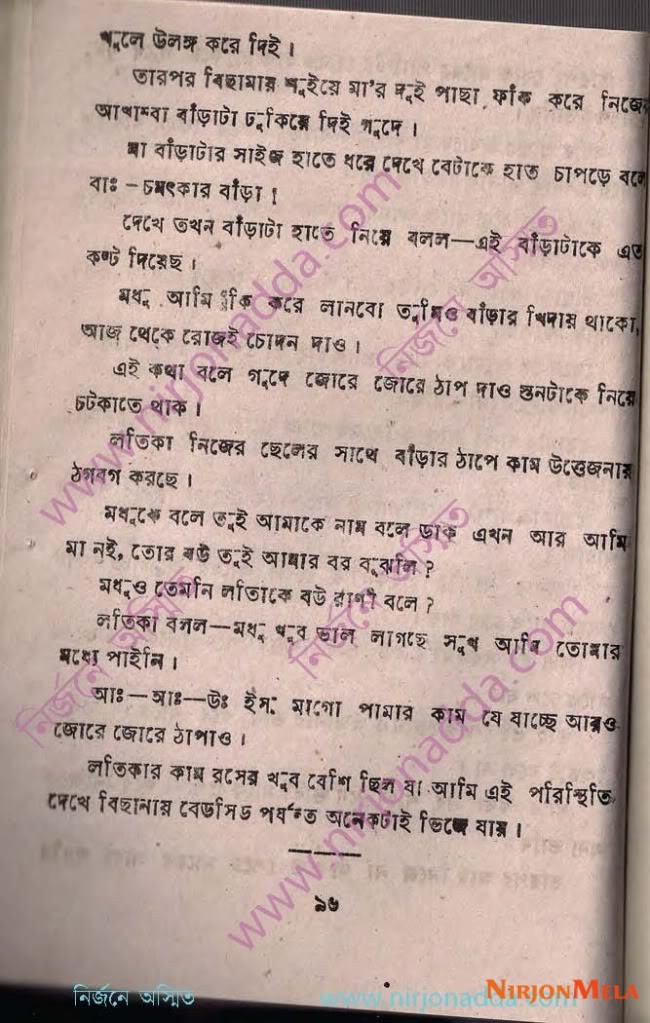 খুলে উলঙ্গ করে দিই।
তারপর বিছানায় শুইয়ে মা'র দুই পাছা ফাঁক করে নিজের
আখাম্বা বাঁড়াটা ঢুকিয়ে দিই গুদে।
মা বাঁড়াটার সাইজ হাতে ধরে দেখে বেটাকে হাত চাপড়ে বলে
বাঃ – চমৎকার বাঁড়া!
দেখে তখন বাঁড়াটা হাতে নিয়ে বলল—এই বাঁড়াটাকে এত
কষ্ট দিয়েছ।
মধু আমি কি করে জানবো তুমিও বাঁড়ার খিদায় থাকো,
আজ থেকে রোজই চোদন দাও।
এই কথা বলে গুদে জোরে জোরে ঠাপ দাও স্তনটাকে নিয়ে
চটকাতে থাক।
লতিকা নিজের ছেলের সাথে বাঁড়ার ঠাপে কাম উত্তেজনায়
ঠগবগ করছে।
মধুকে বলে তুই আমাকে নাম বলে ডাক এখন আর আমি
মা নই, তোর বউ তুই আমার বর বুঝলি?
মধুও তেমনি লতিাকে বউ রাণী বলে?
লতিকা বলল—মধু খুব ভাল লাগছে সুখ আমি তোমার
মধ্যে পাইনি।
আঃ—আঃ—উঃ ইস্ মাগো পামার কাম যে যাচ্ছে আরও
জোরে জোরে ঠাপাও।
লতিকার কাম রসের খুব বেশি ছিল যা আমি এই পরিস্থিতি
দেখে বিছানায় বেডসিড পর্যন্ত অনেকটাই ভিজে যায়।
১৬
নির্জনে অস্মিত www.nirjonadda.com NIRJONMELA